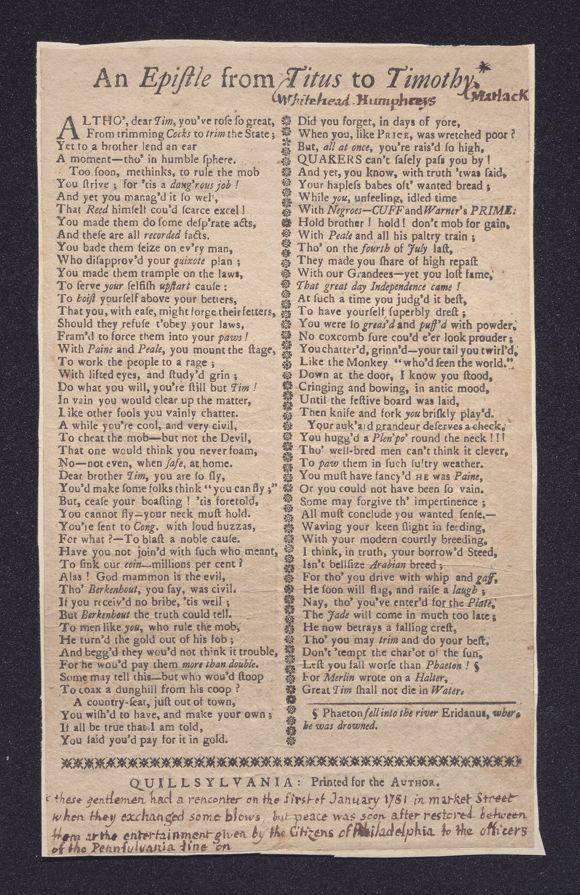 An Epiſtle from Titus to Timothy.*
Whitehead Humphreys Matlack
ALTHO', dear Tim, you've roſe ſo great,
From trimming Cocks to trim the State;
Yet to a brother lend an ear
A moment—tho' in humble ſphere.
Too ſoon, methinks, to rule the mob
You ſtrive; for 'tis a dang'rous job!
And yet you manag'd it ſo wel',
That Reed himſelf cou'd ſcarce excel!
You made them do ſome deſp'rate acts,
And theſe are all recorded facts.
You bade them ſeize on ev'ry man,
Who diſapprov'd your quixote plan;
You made them trample on the laws,
To ſerve your ſelfiſh upſtart cauſe:
To hoiſt yourſelf above your betters,
That you, with eaſe, might forge their fetters,
Should they refuſe t'obey your laws,
Fram'd to force them into your paws!
With Paine and Peale, you mount the ſtage,
To work the people to a rage;
With lifted eyes, and ſtudy'd grin;
Do what you will, you're ſtill but Tim!
In vain you would clear up the matter,
Like other fools you vainly chatter.
A while you're cool, and very civil,
To cheat the mob—but not the Devil,
That one would think you never foam,
No—not even, when ſafe, at home.
Dear brother Tim, you are ſo ſly,
You'd make ſome folks think "you can fly;"
But, ceaſe your boaſting! 'tis foretold,
You cannot fly—your neck muſt hold.
You're ſent to Cong. with loud huzzas,
For what?—To blaſt a noble cauſe.
Have you not join'd with ſuch who meant,
To ſink our coin—millions per cent?
Alas! God mammon is the evil,
Tho' Berkenhout, you ſay, was civil.
If you receiv'd no bribe, 'tis well;
But Berkenhout the truth could tell.
To men like you, who rule the mob,
He turn'd the gold out of his fob;
And begg'd they wou'd not think it trouble,
For he wou'd pay them more than double.
Some may tell this—but who wou'd ſtoop
To coax a dunghill from his coop?
A country-ſeat, juſt out of town,
You wiſh'd to have, and make your own;
If all be true that I am told,
You ſaid you'd pay for it in gold.
Did you forget, in days of yore,
When you, like PRICE, was wretched poor?
But, all at once, you're rais'd ſo high,
QUAKERS can't ſafely paſs you by!
And yet, you know, with truth 'twas ſaid,
Your hapleſs babes oft' wanted bread;
While you, unfeeling, idled time
With Negroes—CUFF and Warner's PRIME:
Hold brother! hold! don't mob for gain,
With Peale and all his paltry train;
Tho' on the fourth of July laſt,
They made you ſhare of high repaſt
With our Grandees—yet you loſt fame,
That great day Independence came!
At ſuch a time you judg'd it beſt,
To have yourſelf ſuperbly dreſt;
You were ſo greas'd and puff'd with powder,
No coxcomb ſure cou'd e'er look prouder;
You chatter'd, grinn'd—your tail you twirl'd,
Like the Monkey "who'd ſeen the world."
Down at the door, I know you ſtood,
Cringing and bowing, in antic mood,
Until the feſtive board was laid,
Then knife and fork you briſkly play'd.
Your auk'ard grandeur deſerves a check,
You hugg'd a Plen'po' round the neck!!!
Tho' well-bred men can't think it clever,
To paw them in ſuch ſultry weather.
You muſt have fancy'd HE was Paine,
Or you could not have been ſo vain.
Some may forgive th' impertinence;
All muſt conclude you wanted ſenſe.—
Waving your keen ſlight in feeding,
With your modern courtly breeding,
I think, in truth, your borrow'd Steed,
Isn't bellſize Arabian breed;
For tho' you drive with whip and gaff,
He ſoon will flag, and raiſe a laugh;
Nay, tho' you've enter'd for the Plate,
The Jade will come in much too late;
He now betrays a falling creſt,
Tho' you may trim and do your beſt.
Don't 'tempt the char'ot of the ſun,
Leſt you fall worſe than Phaeton! §
For Merlin wrote on a Halter,
Great Tim ſhall not die in Water.
§ Phaeton fell into the river Eridanus, where
he was drowned.
QUILLSYLVANIA: Printed for the AUTHOR.
* these gentlemen had a renconter on the first of January 1781 in market Street
when they exchanged some blows, but peace was soon after restored between
them at the entertainment given by the Citizens of Philadelphia to the officers
of the Pennsylvania line on